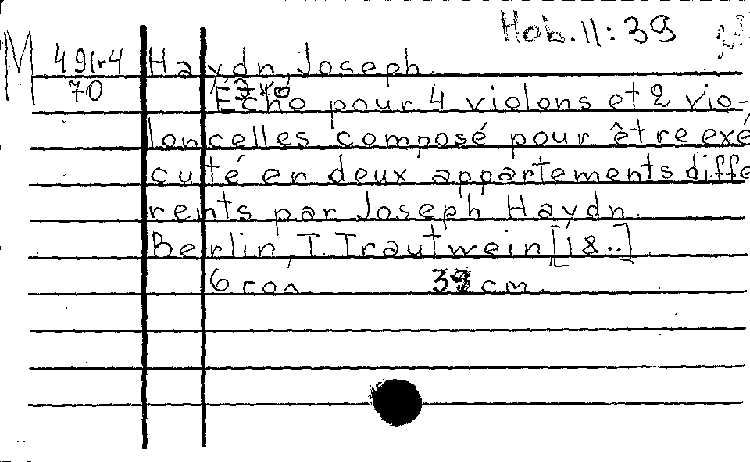 Hob. II: 39
M 491r4 Haydn, Joseph.
70
Echo pour 4 violons et 2 vio-
loncelles composé pour être exé
cuté en deux appartements diffe
rents par Joseph Haydn.
Berlin, T. Trautwein [18..]
6 con. 39 cm.